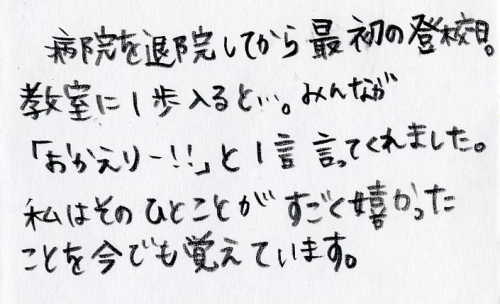 病院を退院してから最初の登校日。
教室に1歩入ると…。みんなが
「おかえりー!!」と1言言ってくれました。
私はそのひとことがすごく嬉かった
ことを今でも覚えています。